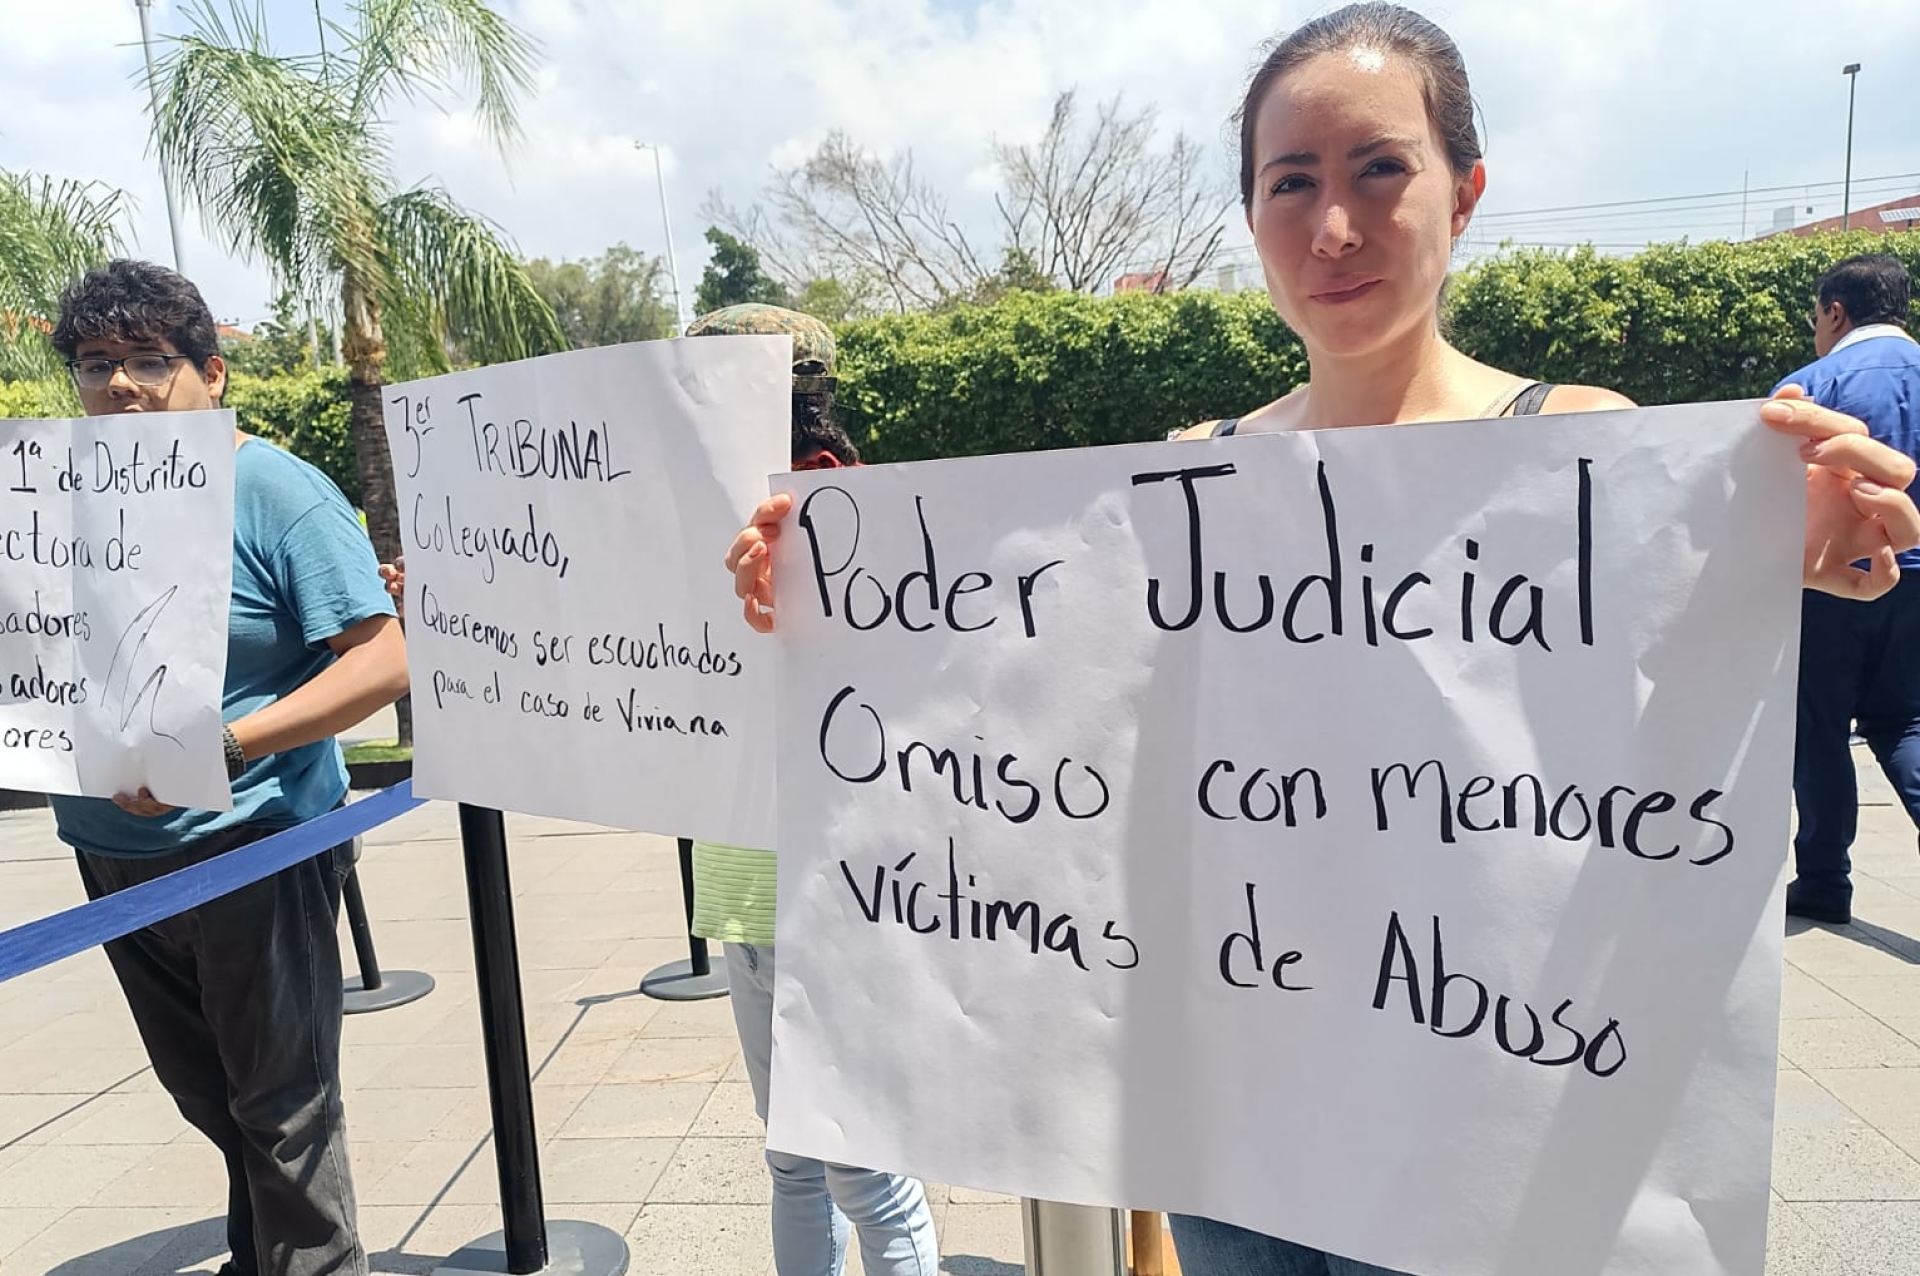 1ª de Distrito
de
ores
3er TRIBUNAL
Colegiado,
Queremos ser escuchados
para el caso de Viviana
Poder Judicial
Omiso con menores
víctimas de Abuso